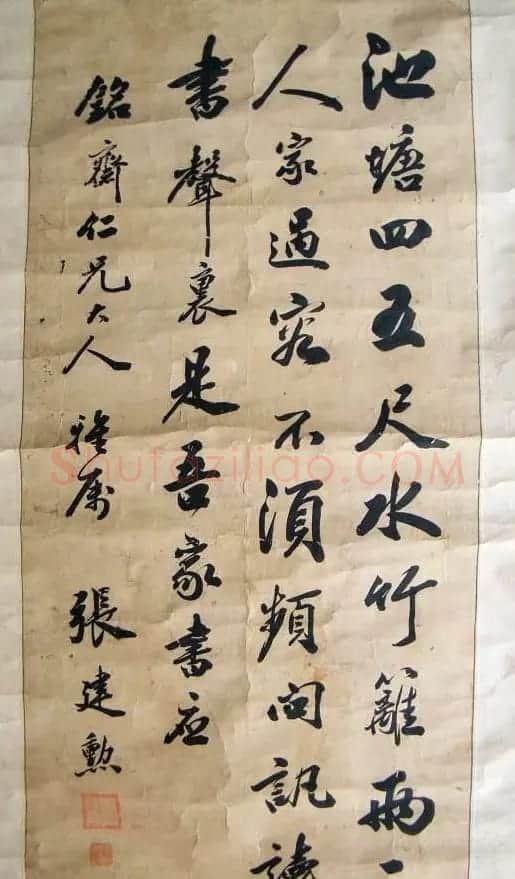 池塘四五尺水竹籬兩
人家過客不湏頻問訊讀
書聲裏是吾家書应
銘齋仁兄大人 雅屬 張建勳
Shufaziliao.COM